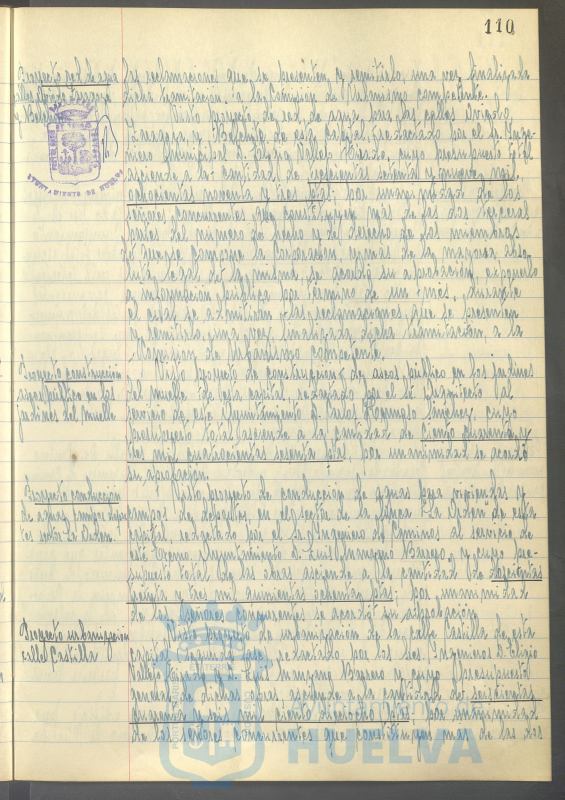 110
Proyecto red de agua
calles Arrigote
y Bellavista
las reclamaciones que se presenten y remitirlo, una vez finalizada
dicha tramitación, a la Comisión de Urbanismo competente.
Visto proyecto de red de agua para las calles
y de esta capital, redactado por el Sr. Inge-
niero Municipal D. Eligio Vallejo cuyo presupuesto total
asciende a la cantidad de trescientas sesenta y nueve mil
ochocientas noventa y tres ptas; por unanimidad de los
señores concurrentes que constituyen más de las dos terceras
partes del número de hecho y de derecho de los miembros
que compone la Corporación, y más de la mayoría abso-
luta legal de la misma, se acordó su aprobación, exponerlo
a información pública por término de un mes, durante
el cual se admitirán las reclamaciones que se presenten
y remitirlo, una vez finalizada dicha tramitación, a la
Comisión de Urbanismo competente.
Proyecto construcción
aseos públicos en los
jardines del muelle
Visto proyecto de construcción de aseos públicos en los jardines
del muelle de esta capital, redactado por el Sr. Arquitecto al
servicio de este Ayuntamiento D. cuyo
presupuesto total asciende a la cantidad de ciento cuarenta y
tres mil cuatrocientas sesenta ptas, por unanimidad se acordó
su aprobación.
Proyecto conducción
de aguas campos depor-
tes sector La Orden
Visto proyecto de conducción de aguas para viviendas y
campos de deportes en el sector de la finca "La Orden" de esta
capital, redactado por el Sr. Ingeniero de Caminos al servicio de
este Excmo. Ayuntamiento D. Luis Manzano y cuyo pre-
supuesto total de las obras asciende a la cantidad de doscientas
treinta y tres mil quinientas ochenta ptas; por unanimidad
de los señores concurrentes se acordó su aprobación.
Proyecto urbanización
calle Castilla
Visto proyecto de urbanización de la calle Castilla de esta
capital, redactado por los Sres. Ingenieros D. Eligio
Vallejo y D. Luis Manzano y cuyo presupuesto
general de dichas obras asciende a la cantidad de seiscientas
mil ciento dieciocho ptas; por unanimidad
de los señores concurrentes que constituyen más de las dos
AYUNTAMIENTO DE HUELVA
Ayuntamiento de
HUELVA